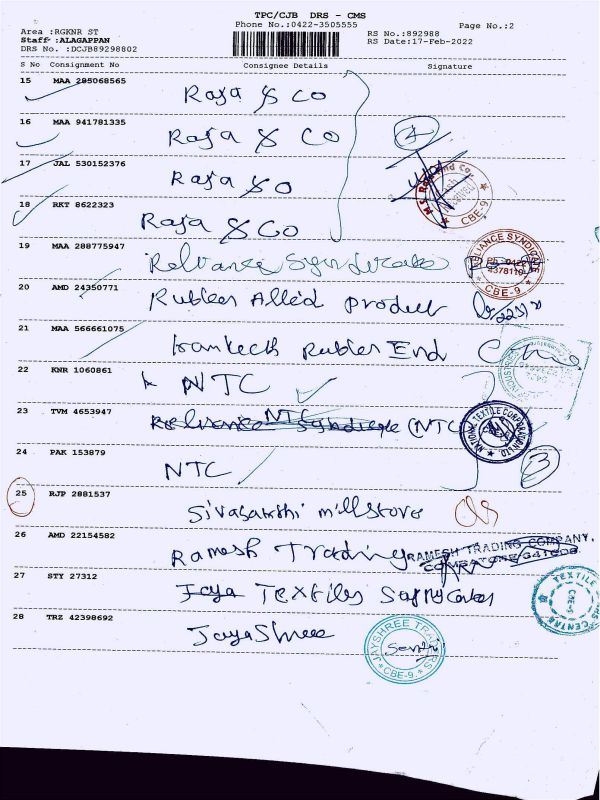 TPC/CJB DRS - CMS
Phone No.:0422-3505555
Page No.:2
Area :RGKNR ST
Staff :ALAGAPPAN
DRS No. :DCJB89298802
RS No.:892988
RS Date:17-Feb-2022
S No Consignment No Consignee Details Signature
15 MAA 285068565 Raja & Co
16 MAA 941781335 Raja & Co
17 JAL 530152376 Raja & Co
18 RKT 8622323 Raja & Co
4
CBE-9
19 MAA 288775947 Reliance Syndicate
RELIANCE SYNDICATE
4378110
CBE-9
20 AMD 24350771 Rubber Allied product
21 MAA 566661075 Rubber End
22 KNR 1060861 NTC
23 TVM 4653947 Reliance Syndicate NTC (NTC
NATIONAL TEXTILE CORPORATION LTD.
24 PAK 153879 NTC
3
25 RJP 2881537 Sivasakthi millstore
26 AMD 22154582 Ramesh Trading
RAMESH TRADING COMPANY,
27 STY 27312 Jaya Textiles
TEXTILE
28 TRZ 42398692 JayaShree
JAYSHREE TRADERS
CBE-9.